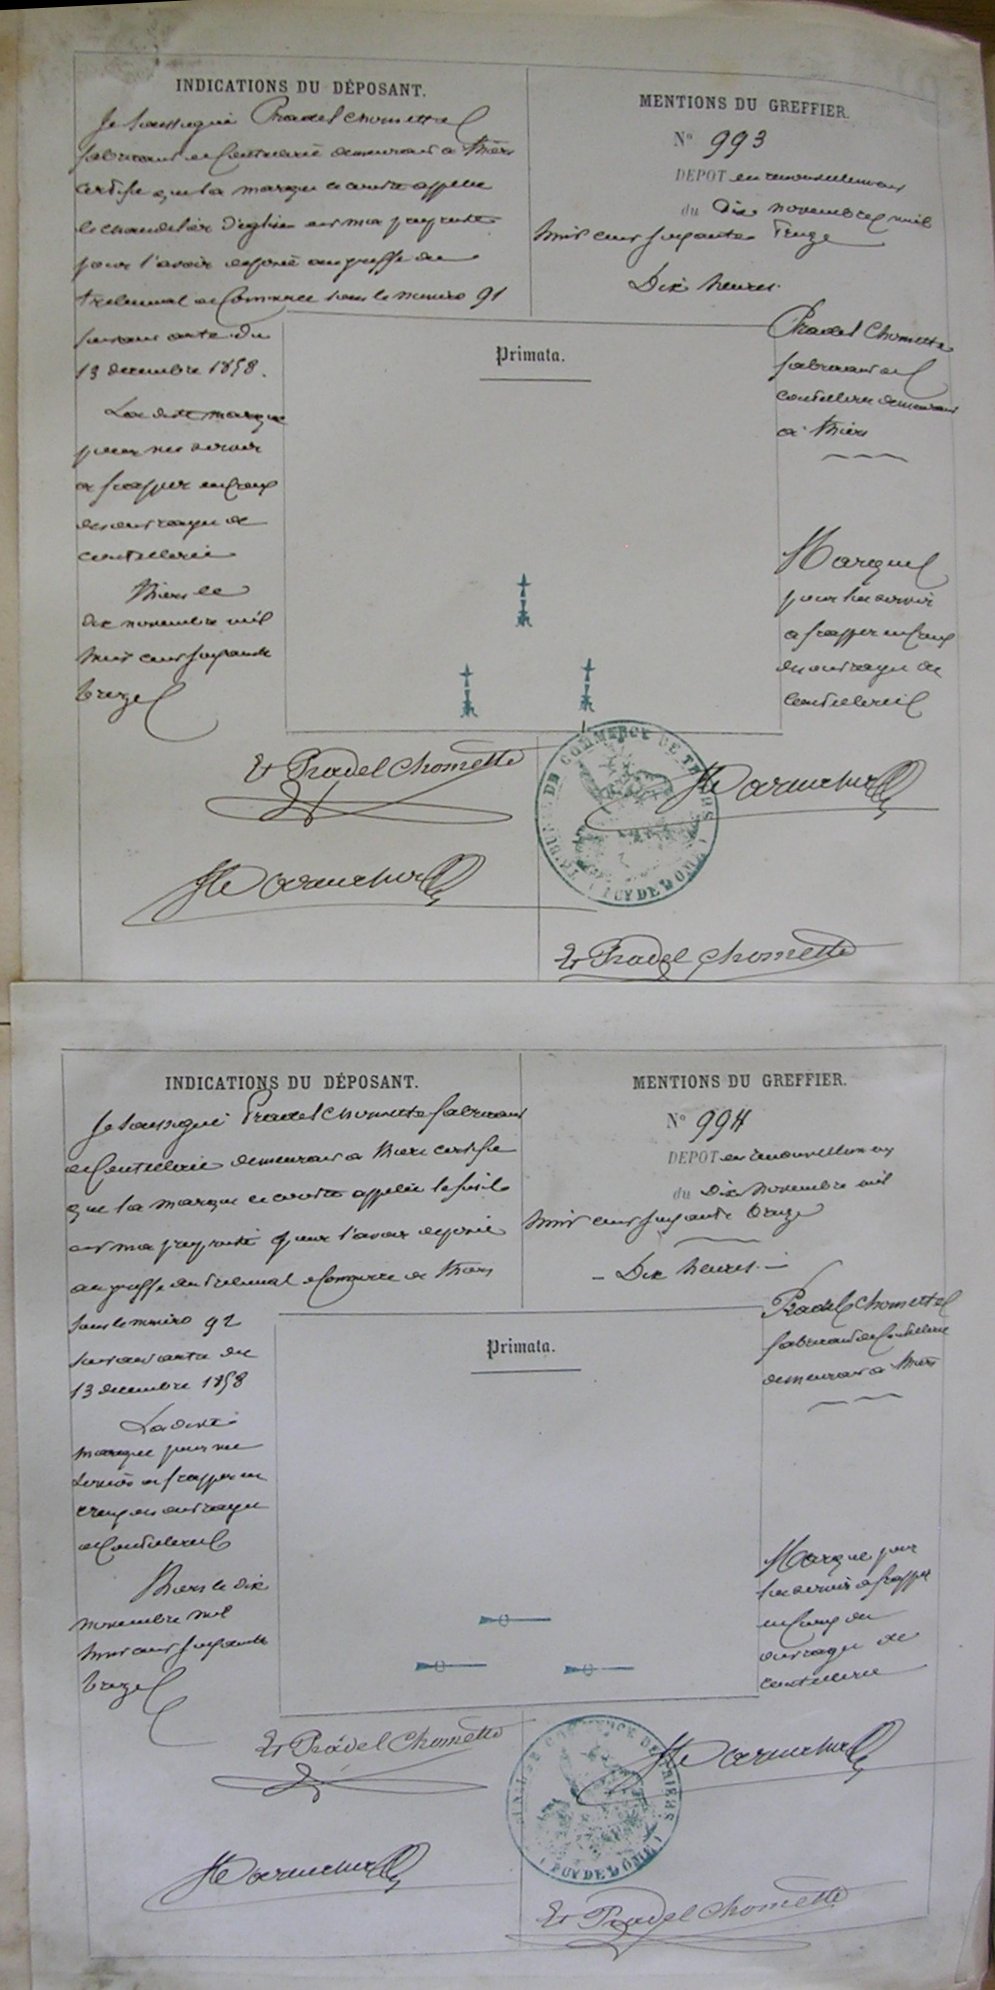 INDICATIONS DU DÉPOSANT.
Je soussigné Pradel Chomette
fabricant de Coutellerie demeurant a Thiers
certifie que la marque ci contre appelée
le chandelier d'église est ma propriété
pour l'avoir déposée au greffe du
tribunal de Commerce sous le numéro 91
suivant acte du
13 decembre 1858.
La dite marque
pour me servir
a frapper en creux
des ouvrages de
coutellerie
Thiers le
dix novembre mil
huit cent soixante
treize
MENTIONS DU GREFFIER.
N° 993
DEPOT en renouvellement
du Dix novembre mil
huit cent soixante Treize
Dix heures.
Primata.
Pradel Chomette
fabricant de
coutellerie demeurant
a Thiers
Marque
pour lui servir
a frapper en creux
des ouvrages de
Coutellerie
Et Pradel Chomette
TRIBUNAL DE COMMERCE DE THIERS
(PUY DE DÔME)
Et Pradel Chomette
INDICATIONS DU DÉPOSANT.
Je soussigné Pradel Chomette fabricant
de Coutellerie demeurant a Thiers certifie
que la marque ci contre appelée le fusil
est ma propriété pour l'avoir déposée
au greffe du Tribunal de Commerce de Thiers
sous le numéro 92
suivant acte du
13 decembre 1858
La dite
marque pour me
servir a frapper en
creux des ouvrages
de Coutellerie
Thiers le dix
novembre mil
huit cent soixante
treize
MENTIONS DU GREFFIER.
N° 994
DEPOT en renouvellement
du Dix Novembre mil
huit cent soixante treize
- Dix heures. -
Primata.
Pradel Chomette
fabricant de Coutellerie
demeurant a Thiers
Marque pour
lui servir a frapper
en creux des
ouvrages de
coutellerie
Et Pradel Chomette
TRIBUNAL DE COMMERCE DE THIERS
(PUY DE DÔME)
Et Pradel Chomette